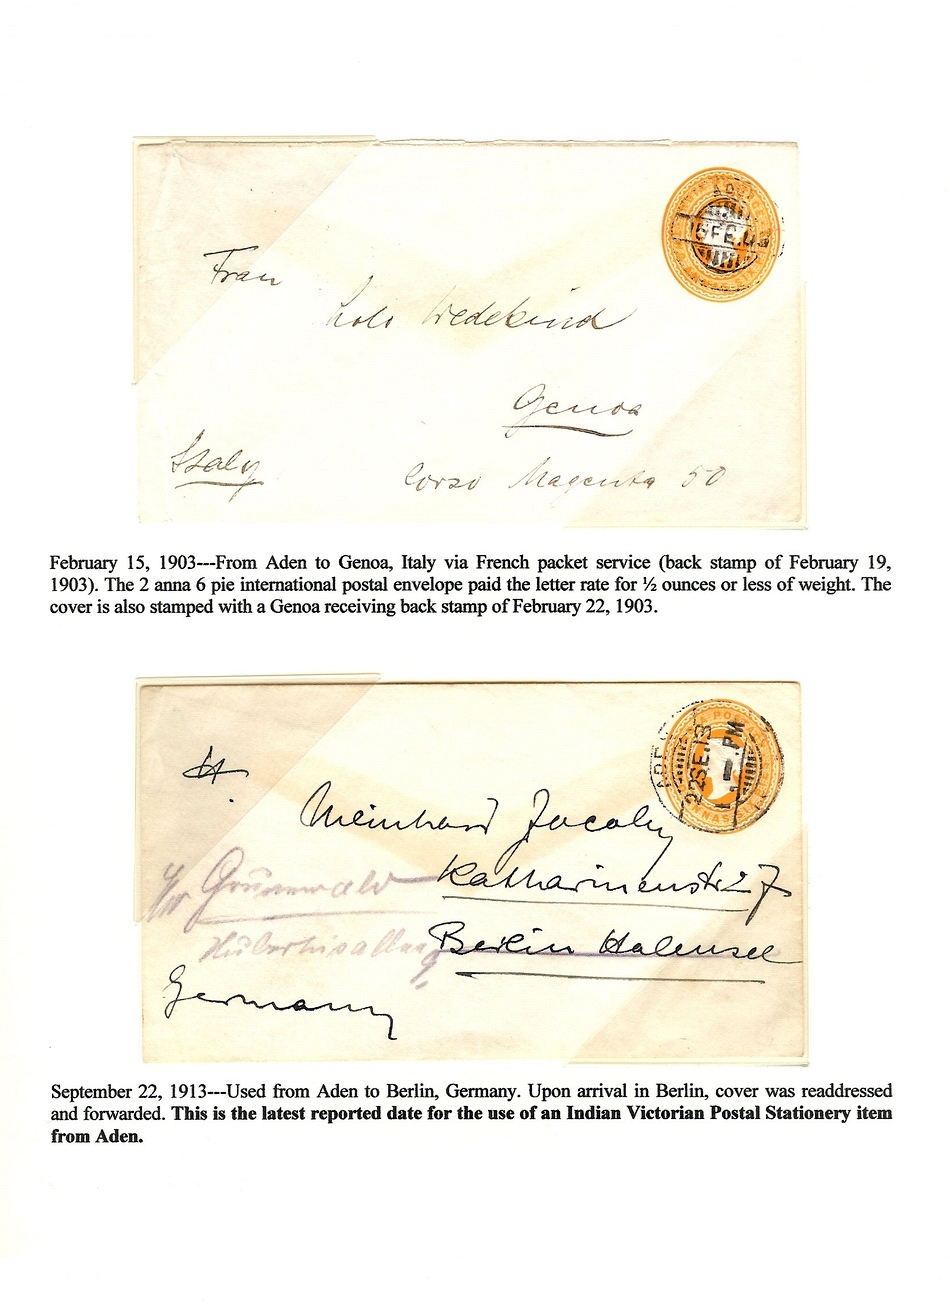 ADEN
15 FE. 03
Frau
Lolo Wedekind
Genoa
Italy
Corso Magenta 50
February 15, 1903---From Aden to Genoa, Italy via French packet service (back stamp of February 19,
1903). The 2 anna 6 pie international postal envelope paid the letter rate for ½ ounces or less of weight. The
cover is also stamped with a Genoa receiving back stamp of February 22, 1903.
ADEN
22 SE. 13
PM
H.
Meinhard Jacoby
Katharinenstr 27
Grunewald
Berlin Halensee
Hubertusallee
9
Germany
September 22, 1913---Used from Aden to Berlin, Germany. Upon arrival in Berlin, cover was readdressed
and forwarded. This is the latest reported date for the use of an Indian Victorian Postal Stationery item
from Aden.